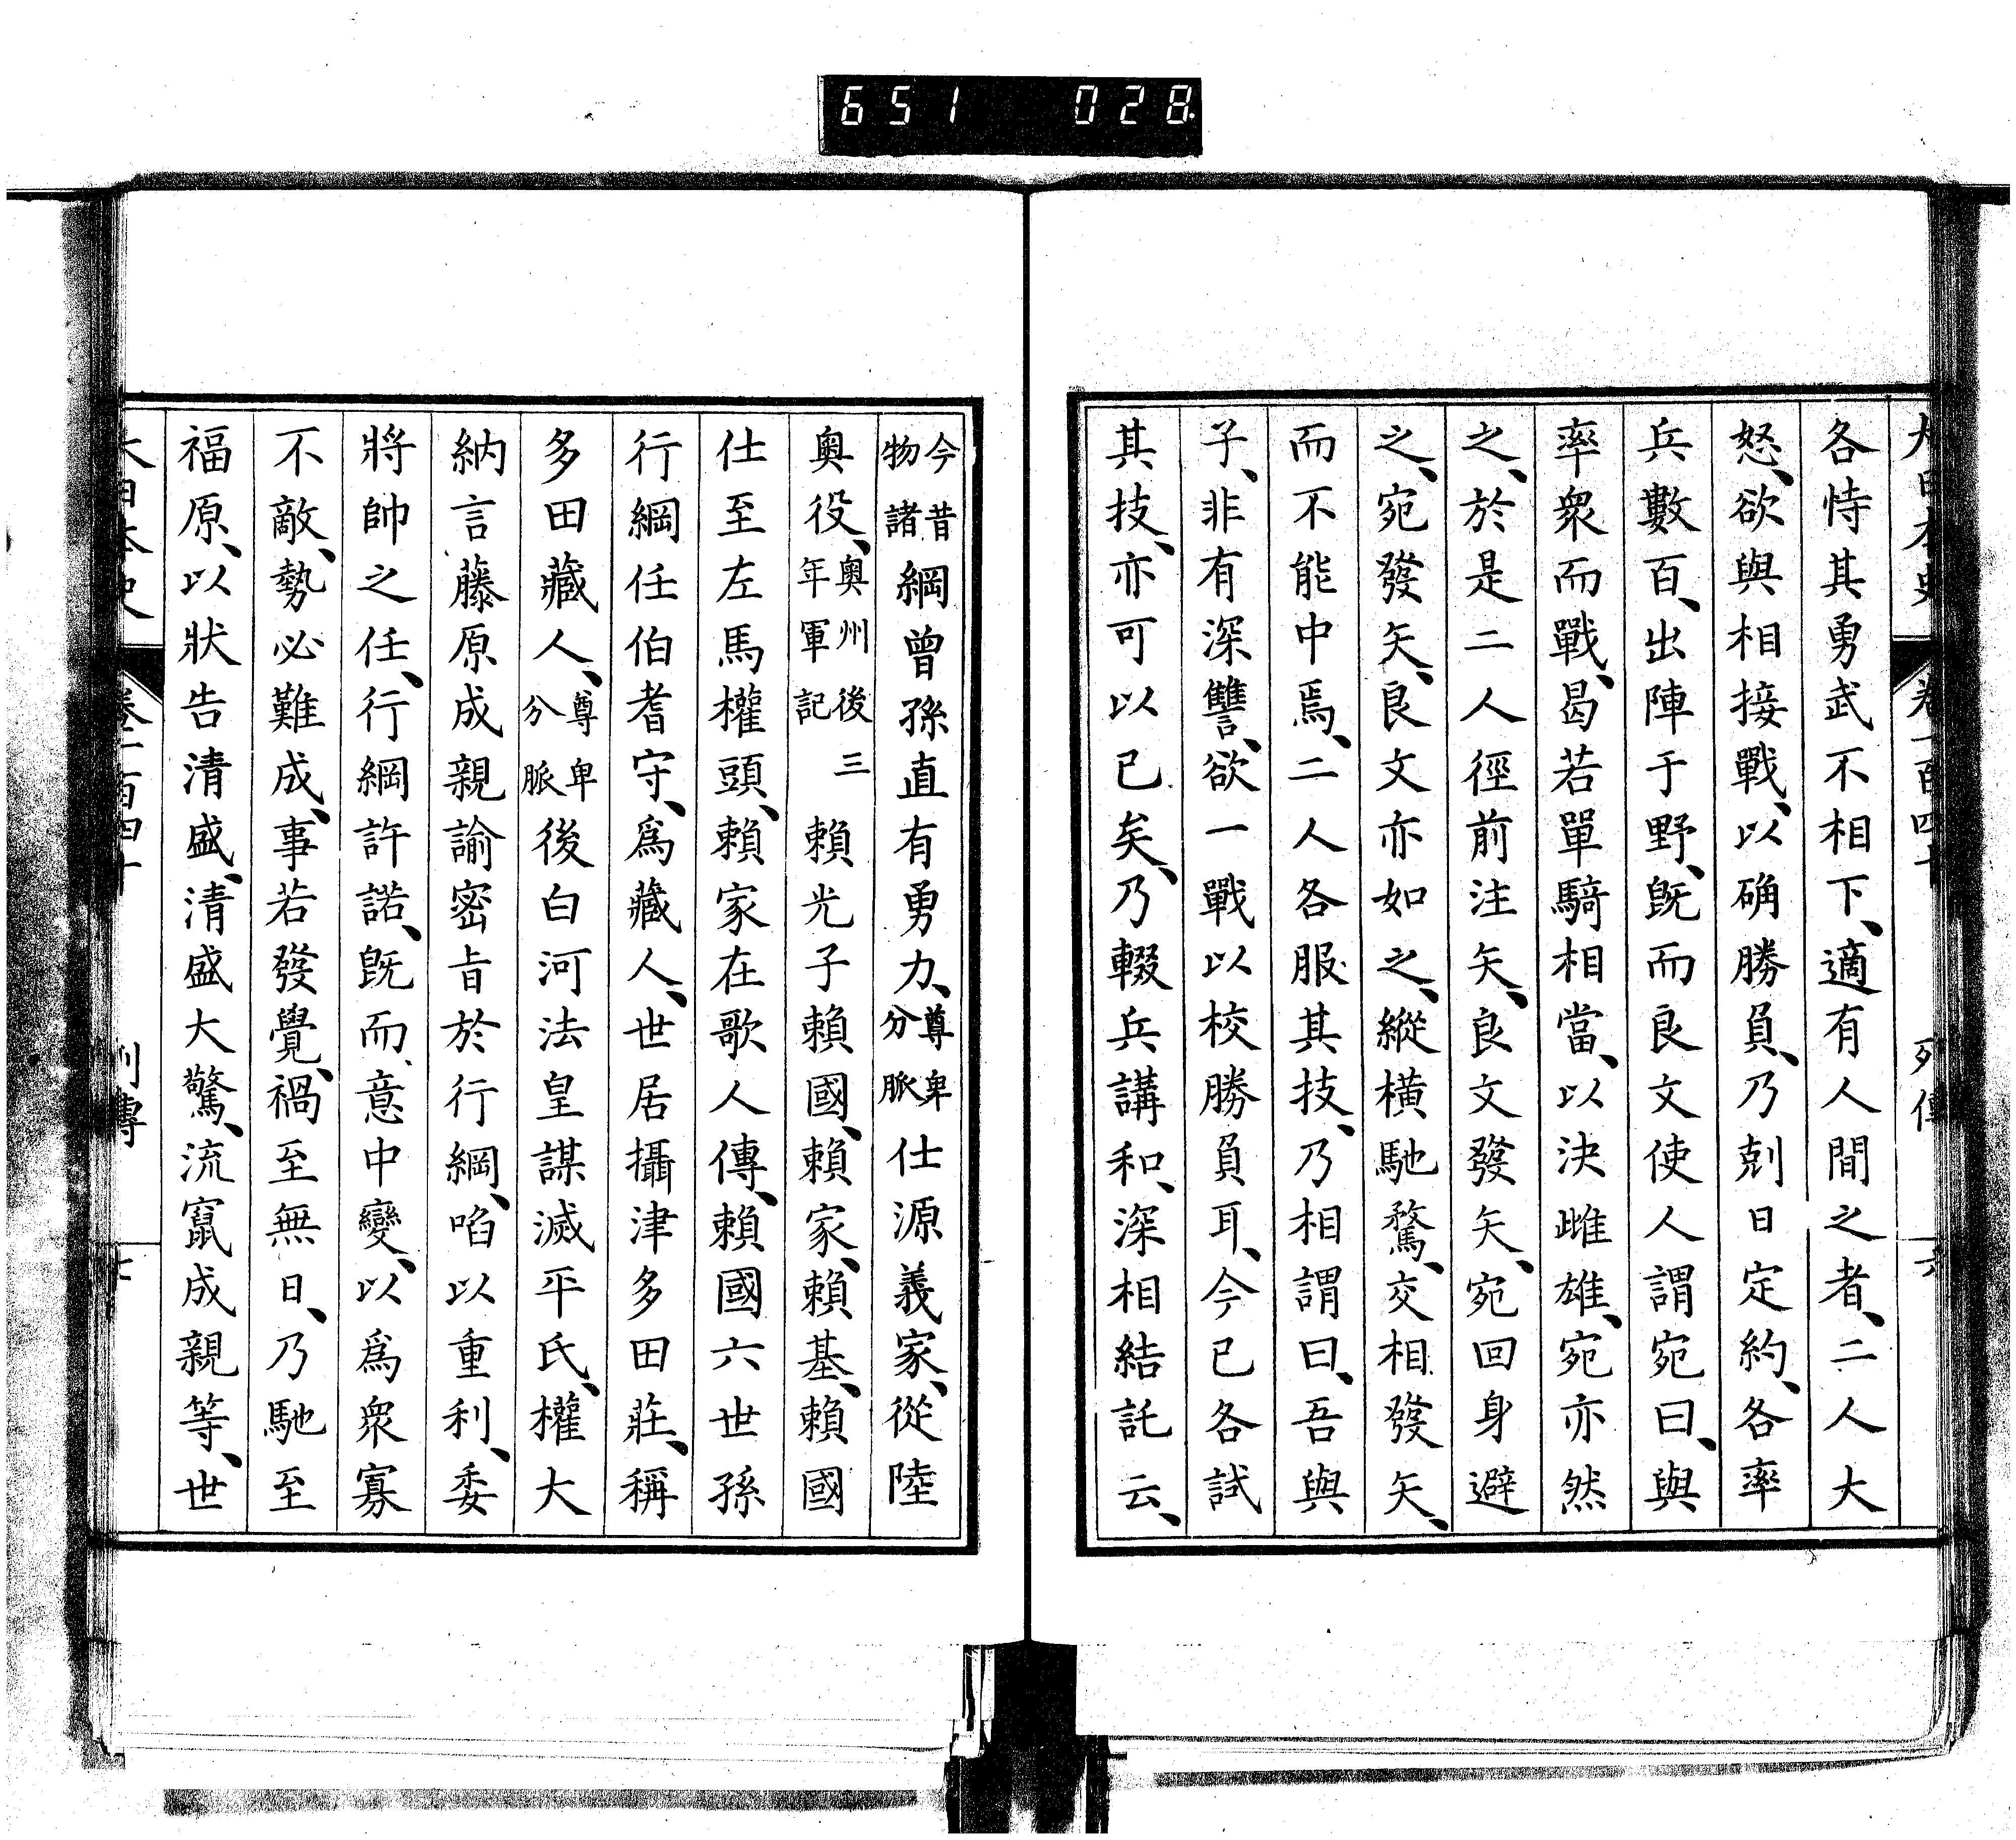 651 028
大日本史 卷一百四十 列傳 六
各恃其勇武不相下、適有人間之者、二人大
怒、欲與相接戰、以确勝負、乃剋日定約、各率
兵數百、出陣于野、既而良文使人謂宛曰、與
率衆而戰、曷若單騎相當、以決雌雄、宛亦然
之、於是二人徑前注矢、良文發矢、宛回身避
之、宛發矢、良文亦如之、縱橫馳騖、交相發矢、
而不能中焉、二人各服其技、乃相謂曰、吾與
子、非有深讐、欲一戰以校勝負耳、今已各試
其技、亦可以已矣、乃輟兵講和、深相結託云、
今昔物諸綱曾孫直有勇力、尊卑分脈仕源義家、從陸
奧役、奧州後三年軍記賴光子賴國、賴家、賴基、賴國
仕至左馬權頭、賴家在歌人傳、賴國六世孫
行綱任伯耆守、爲藏人、世居攝津多田莊、稱
多田藏人、尊卑分脈後白河法皇謀滅平氏、權大
納言藤原成親諭密旨於行綱、啗以重利、委
將帥之任、行綱許諾、既而意中變、以爲衆寡
不敵、勢必難成、事若發覺、禍至無日、乃馳至
福原、以狀告清盛、清盛大驚、流竄成親等、世
大日本史 卷一百四十 列傳 七